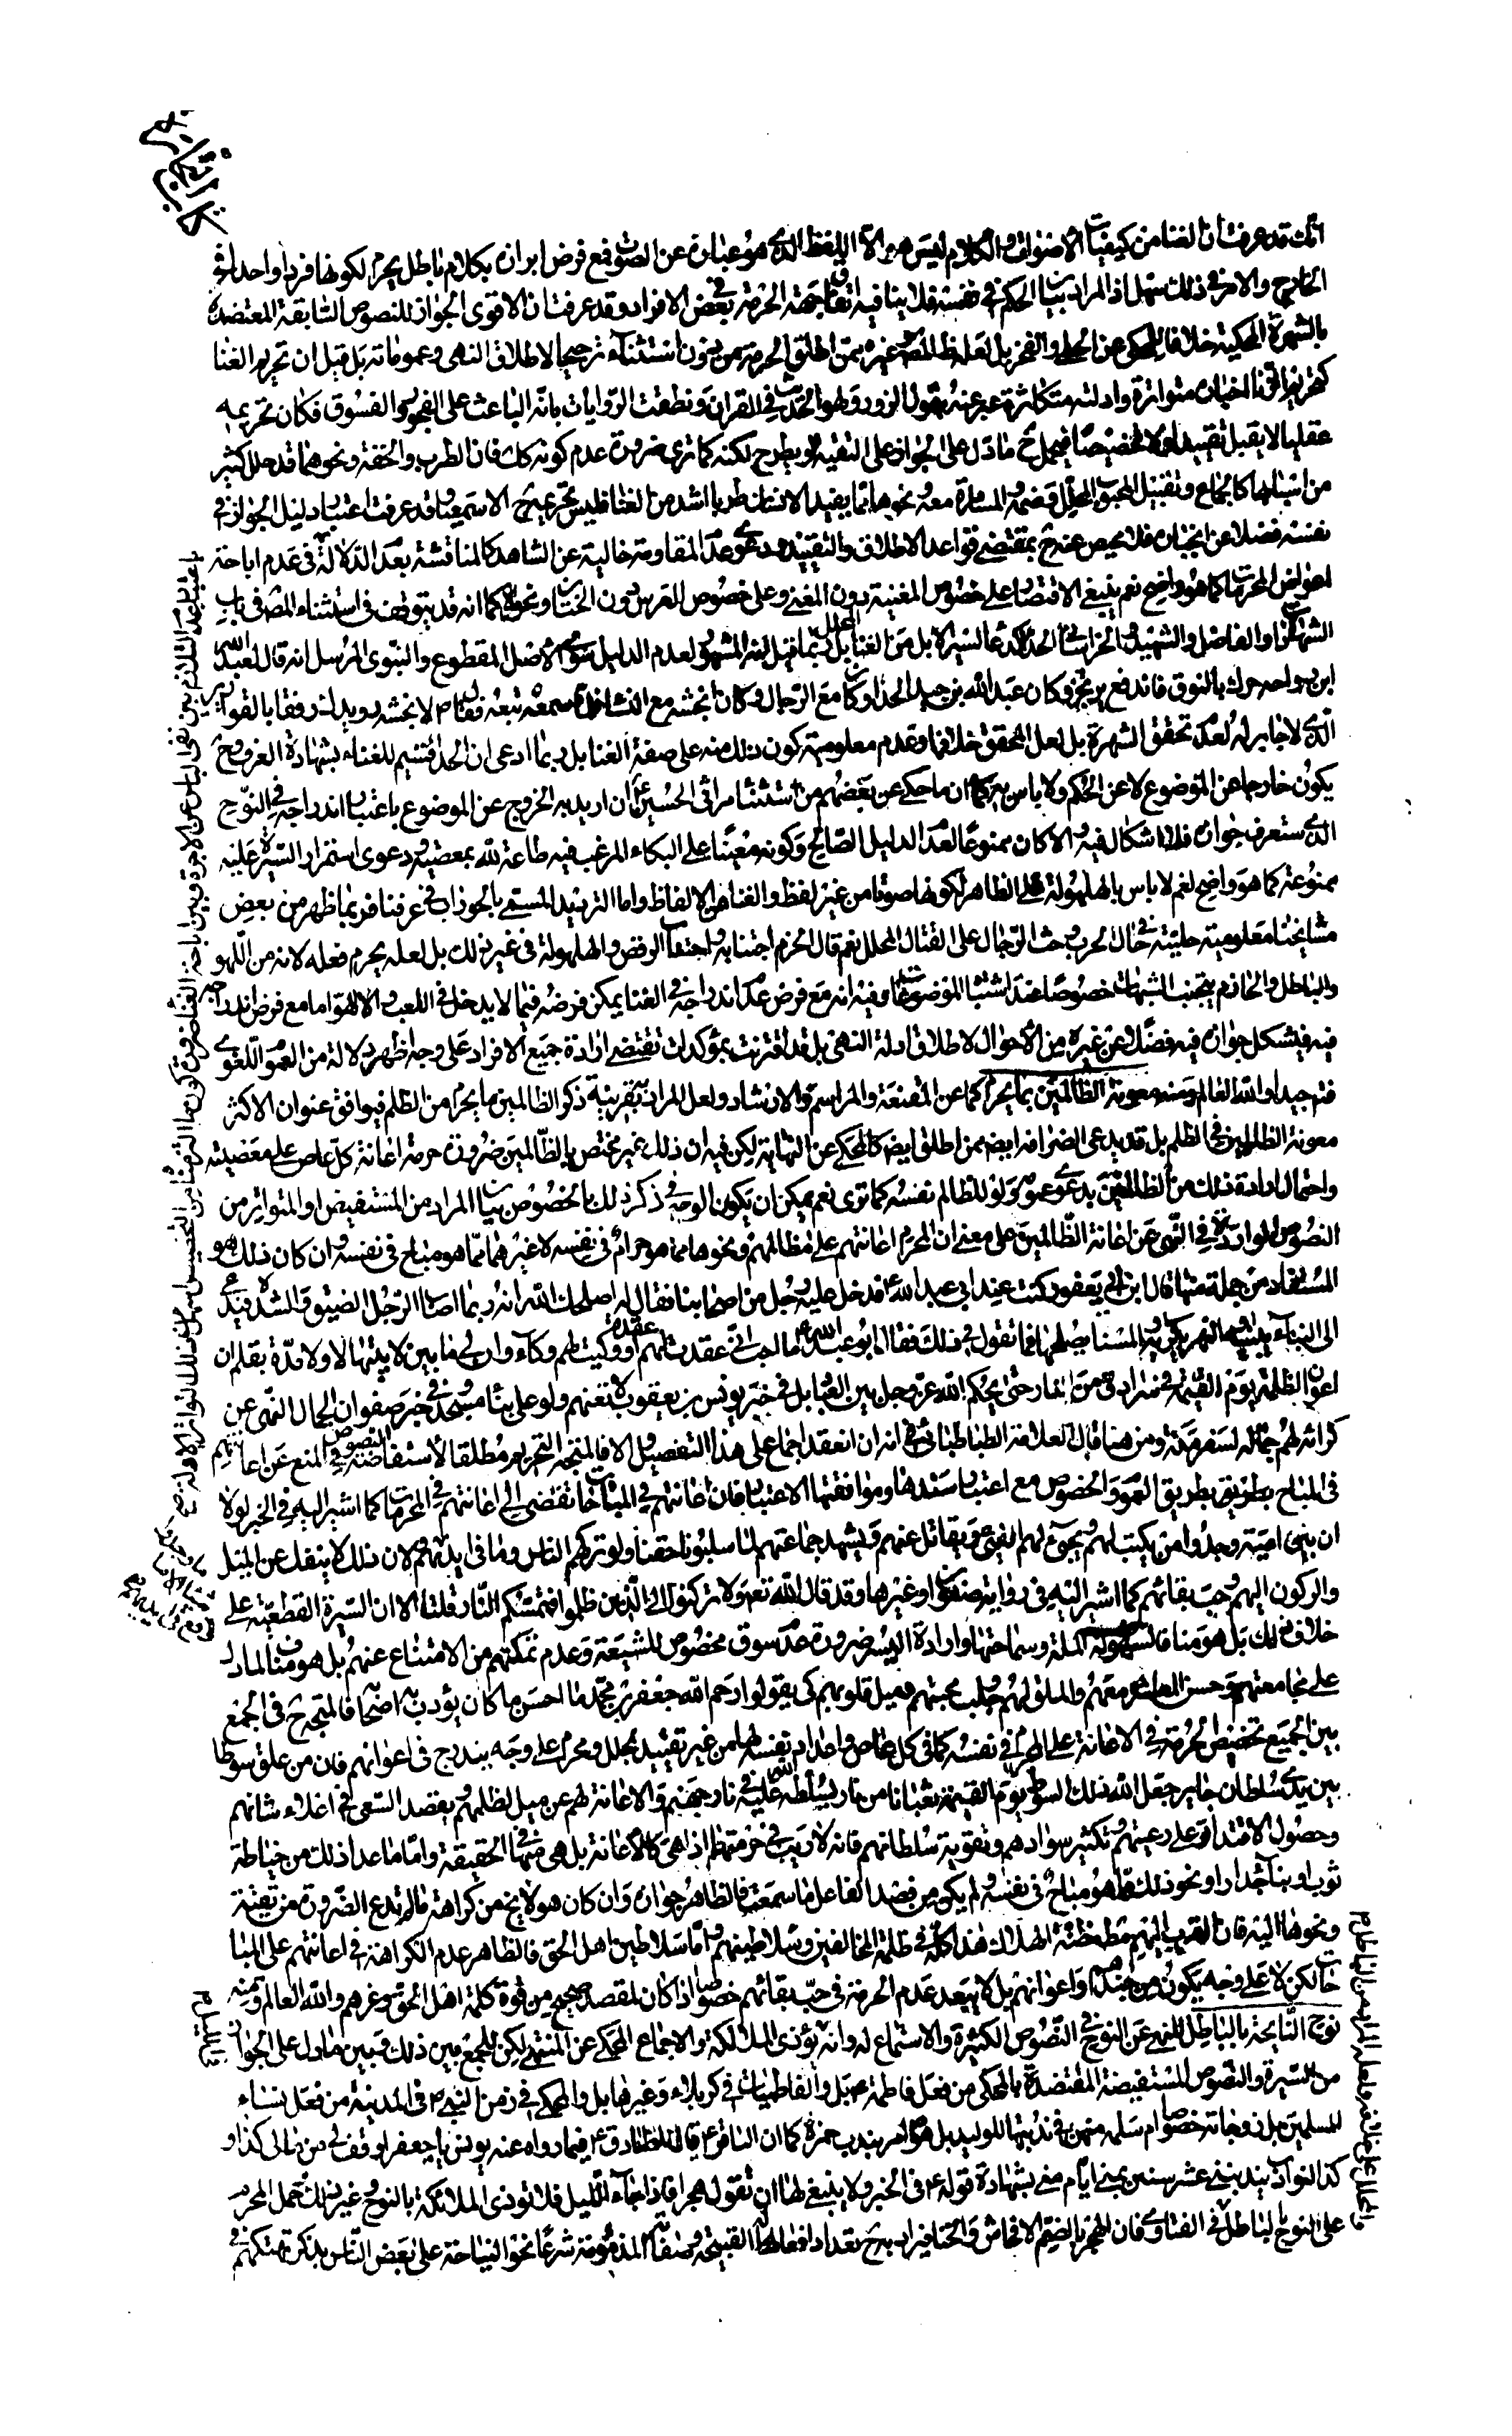 انك قد عرفت ان الغنا من كيفيات الاصوات والكلام ليس هو الا اللفظ الذي هو عبارة عن الصوت فمع فرض ابران بكلام باطل يحرم لكونها فردا واحدا في
الخارج والامر في ذلك سهل اذ المراد بيان الحكم في نفسه فلا ينافيه اتفاق جهة الحرمة في بعض الافراد وقد عرفت ان الاقوى الجواز للنصوص السابقة المعتضدة
بالشهرة المحكية خلافا للمحكي عن الحلي والفخر بل لعله ظاهر غيره ممن اطلق الحرمة من دون استثناء ترجيحا لاطلاق النهي وعموماته بل قيل ان تحريم الغنا
كتحريم الزنا اخباره متواترة وادلته متكاثرة عبر عنه بقول الزور ولهو الحديث في القران ونطقت الروايات بانه الباعث على الفجور والفسوق فكان تحريمه
عقليا لا يقبل تقييدا ولا تخصيصا فيحمل ح ما دل على الجواز على التقية او يطرح لكنه كما ترى ضرورة عدم كونه كك فان الطرب والخفة ونحوهما قد حلل كثير
من اسبابها كالجماع وتقبيل المحبوب المحلل وضمه والمسارة معه ونحوها مما يفيد الانسان طربا اشد من الغنا فليس تحريمه ح الا سمعيا وقد عرفت اعتبار دليل الجواز في
نفسه فضلا عن انجباره فلا محيص عنه ح بمقتضى قواعد الاطلاق والتقييد ودعوى عدم المقاومة خالية عن الشاهد كالمناقشة بعدم الدلالة في عدم اباحة
العوض المحرم كما هو واضح نعم ينبغي الاقتصار على خصوص المغنية دون المغني وعلى خصوص العرس دون الختان ونحوه كما انه قد يتوقف في استثناء المص في باب
الشهادات والفاضل والشهيد والخراساني الحداء بل من الغنا بل ربما قيل انه المشهور لعدم الدليل سوى الاصل المقطوع والنبوي المرسل انه قال لعبد الله
ابن رواحة حرك بالنوق فاندفع يرتجز وكان عبد الله جيد الحداء وكان مع الرجال وكان انجشة مع النساء فلما سمعه تبعه فقال ص لانجشه رويدك رفقا بالقوارير
الذي لا جابر له لعدم تحقق الشهرة بل لعل المحقق خلافها وعدم معلومية كون ذلك منه على صفة الغنا بل ربما ادعى ان الحداء قسيم للغناء بشهادة العرف وح
يكون خارجا عن الموضوع لا عن الحكم ولا باس به كما ان ما حكي عن بعضهم من استثناء مراثي الحسين ع ان اريد به الخروج عن الموضوع باعتبار اندراجه في النوح
الذي ستعرف جوازه فلا اشكال فيه والا كان ممنوعا لعدم الدليل الصالح وكونه معينا على البكاء المرغب فيه طاعة لله بمعصيته ودعوى استمرار السيرة عليه
ممنوعة كما هو واضح نعم لا باس بالهلهولة على الظاهر لكونها صوتا من غير لفظ والغنا من الالفاظ واما التربيد المسمى بالجوزاب في عرفنا فربما ظهر من بعض
مشايخنا معلومية حليته في حال الحرب وحث الرجال على القتال المحلل نعم قال الحزم اجتنابه واجتناب الرقص والهلهولة في غير ذلك بل لعله يحرم فعله لانه من اللهو
والباطل والحازم يتجنب الشبهات خصوصا عند اشتباه الموضوعات وفيه انه مع فرض عدم اندراجه في الغنا يمكن فرضه فيما لا يدخل في اللعب والا لهو اما مع فرض اندراجه
فيه فيشكل جوازه فيه فضلا عن غيره من الاحوال لاطلاق ادلة النهي بل قد اقترنت بمؤكدات تقتضي ارادة جميع الافراد على وجه اظهر دلالة من العموم اللغوي
فتدبر جيدا والله العالم ومنه معونة الظالمين بما يحرم كما عن المقنعة والمراسم والارشاد ولعل المراد بقرينة ذكر الظالمين ما يحرم من الظلم فيوافق عنوان الاكثر
معونة الظالمين في الظلم بل قد يدعى انصرافه ايضا ممن اطلق ايضا كالمحكي عن النهاية لكن فيه ان ذلك غير مختص بالظالمين ضرورة حرمة اعانة كل عاص على معصيته
واحتمال ارادة ذلك من الظالمين بدعوى عمومه ولو للظالم نفسه كما ترى نعم يمكن ان يكون الوجه في ذكر ذلك بالخصوص بيان المراد من المستفيض او المتواتر من
النصوص الواردة في النهي عن اعانة الظالمين على معنى ان المحرم اعانتهم على مظالمهم ونحوها مما هو حرام في نفسه لا غيرهما مما هو مباح في نفسه وان كان ذلك هو
المستفاد من جملة منها قال ابن ابي يعفور كنت عند ابي عبد الله ع فدخل عليه رجل من اصحابنا فقال له اصلحك الله انه ربما اصاب الرجل الضيق والشدة فيدعى
الى البناء يبنيه والنهر يكريه والمسناة يصلحها فما تقول في ذلك فقال ابو عبد الله ع ما احب اني عقدت لهم عقدة او وكيت لهم وكاء وان لي ما بين لابتيها لا ولا مدة بقلم ان
اعوان الظلمة يوم القيمة في سرادق من النار حتى يحكم الله عز وجل بين العباد بل في خبر يونس بن يعقوب لا تعنهم ولو على بناء مسجد وفي خبر صفوان الجمال النهي عن
كرائه لهم جماله لسفر مكة ومن هنا قال العلامة الطباطبائي في انه ان انعقد اجماع على هذا التفصيل والا فالمتجه التحريم مطلقا لاستفاضة النصوص في المنع عن اعانتهم
في المباح بطريق بطريق العموم والخصوص مع اعتبار سندها وموافقتها الاعتبار فان اعانتهم في المباحات تفضي الى اعانتهم في المحرمات كما اشير اليه في الخبر لولا
ان بني امية وجدوا من يكتب لهم ويجبي لهم الفيء ويقاتل عنهم ويشهد جماعتهم لما سلبونا حقنا ولو تركهم الناس وما في ايديهم لان ذلك لا ينفك عن الميل
والركون اليهم وحب بقائهم كما اشير اليه في رواية صفوان وغيرها وقد قال الله تعالى ولا تركنوا الى الذين ظلموا فتمسكم النار قلت الا ان السيرة القطعية على
خلاف ذلك بل هو مناف لسهولة الملة وسماحتها وارادة اليسر ضرورة عدم سوق مخصوص للشيعة وعدم تمكنهم من الامتناع عنهم بل هو مناف لما دل
على مجامعتهم وحسن المعاشرة معهم والملق لهم وجلب محبتهم وميل قلوبهم كي يقولوا رحم الله جعفر بن محمد ما احسن ما كان يؤدب به اصحابه فالمتجه ح في الجمع
بين الجميع تخصيص الحرمة في الاعانة على المحرم في نفسه كما في كل عاص واعداد نفسه لها من غير تقييد بمحلل ومحرم على وجه يندرج في اعوانهم فان من علق سوطا
بين يدي سلطان جاير جعل الله ذلك السوط يوم القيمة ثعبانا من نار يسلطه الله عليه في نار جهنم والاعانة لهم عن ميل لظلمهم وبقصد السعي في اعلاء شانهم
وحصول الاقتدار على رعيتهم وتكثير سوادهم وتقوية سلطانهم فانه لا ريب في حرمتها اذ هي كالاعانة بل هي منها في الحقيقة واما ما عدا ذلك من خياطة
ثوب او بناء جدار او نحو ذلك مما هو مباح في نفسه ولم يكن من قصد الفاعل ما سمعته فالظاهر جوازه وان كان هو لا يخ من كراهة ما لم تدع الضرورة من تقية
ونحوها اليه فان القرب اليهم مظنة الهلاك هذا كله في ظلمة المخالفين وسلاطينهم واما سلاطين اهل الحق فالظاهر عدم الكراهة في اعانتهم على المبا
حات لكن لا على وجه يكون من جندهم واعوانهم بل لا يبعد عدم الحرمة في حب بقائهم خصوصا اذا كان لمقصد صحيح من قوة كلمة اهل الحق وعزهم والله العالم ومنه
نوح النايحة بالباطل للنهي عن النوح في النصوص الكثيرة والاستماع له وانه يؤذي الملائكة والاجماع المحكي عن المنتهى لكن للجمع بين ذلك وبين ما دل على الجواز
من السيرة والنصوص المستفيضة المعتضدة بالمحكي من فعل فاطمة ع بل والفاطميات في كربلاء وغيرها بل والمحكي في زمن النبي ص في المدينة من فعل نساء
المسلمين بل زوجاته خصوصا ام سلمة منهن في ندبتها للوليد بل هو امر بندب حمزة كما ان الباقر ع قال للصادق ع فيما رواه عنه يونس يا جعفر اوقف لي من مالي كذا و
كذا لنوادب يندبنني عشر سنين بمنى ايام منى بشهادة قوله ع في الخبر ولا ينبغي لها ان تقول هجرا فاذا جاء الليل فلا تؤذي الملائكة بالنوح وغير ذلك حمل المحرم
على النوح بالباطل في الفتاوى فان الهجر بالضم الافحاش والخنا فيراد به ح تعداد افعاله القبيحة وصفاته المذمومة شرعا نحو النياحة على بعض الناس بذكر تهتكهم في
باعتبار عدم التلازم بين نفي الباس عن الاجرة وبين اباحة الغنا ضرورة كون